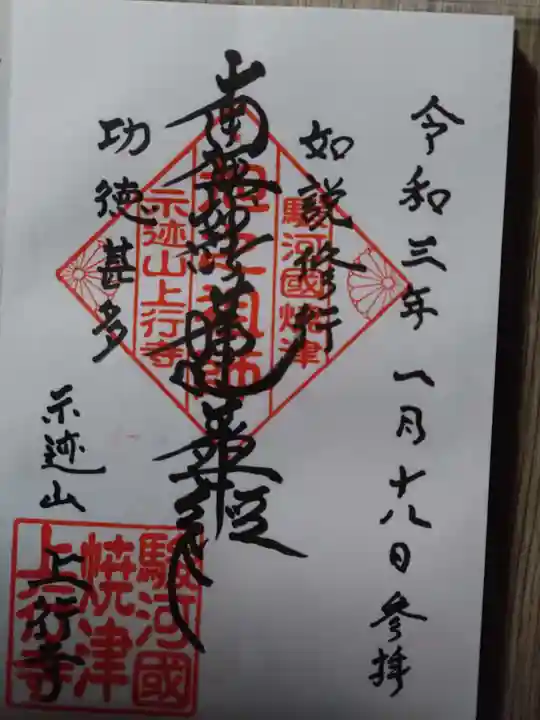 令和三年一月十八日参拝
如説修行
南無妙法蓮華経
功徳甚多
示迹山
上行寺
駿河國焼津
示迹山上行寺
駿河國
焼津
上行寺